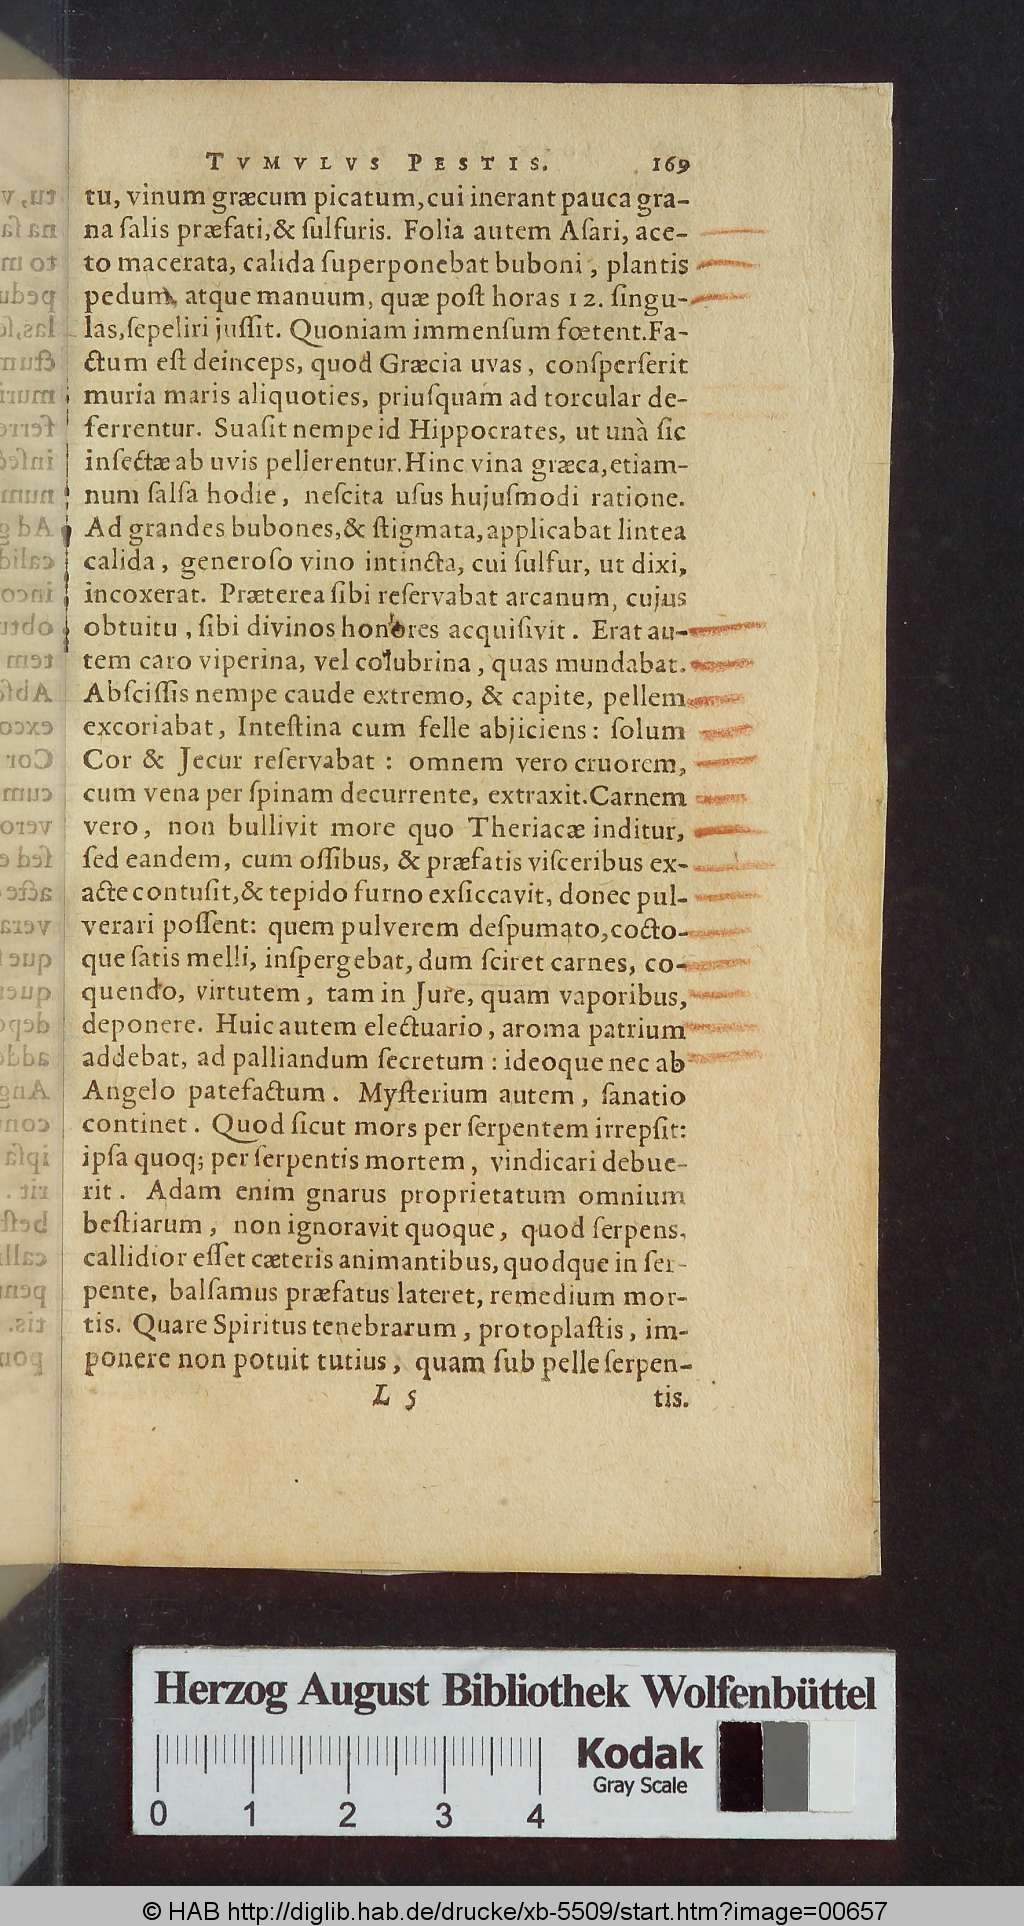 TVMVLVS PESTIS. 169
tu, vinum græcum picatum, cui inerant pauca gra-
na ſalis præfati, & ſulfuris. Folia autem Aſari, ace-
to macerata, calida ſuperponebat buboni, plantis
pedum, atque manuum, quæ poſt horas 12. ſingu-
las, ſepeliri juſſit. Quoniam immenſum fœtent. Fa-
ctum eſt deinceps, quod Græcia uvas, conſperſerit
muria maris aliquoties, priuſquam ad torcular de-
ferrentur. Suaſit nempe id Hippocrates, ut unà ſic
infectæ ab uvis pellerentur. Hinc vina græca, etiam-
num ſalſa hodie, neſcita uſus hujuſmodi ratione.
Ad grandes bubones, & ſtigmata, applicabat lintea
calida, generoſo vino intincta, cui ſulfur, ut dixi,
incoxerat. Præterea ſibi reſervabat arcanum, cujus
obtuitu, ſibi divinos honores acquiſivit. Erat au-
tem caro viperina, vel colubrina, quas mundabat.
Abſciſſis nempe caude extremo, & capite, pellem
excoriabat, Inteſtina cum felle abjiciens: ſolum
Cor & Jecur reſervabat: omnem vero cruorem,
cum vena per ſpinam decurrente, extraxit. Carnem
vero, non bullivit more quo Theriacæ inditur,
ſed eandem, cum oſſibus, & præfatis viſceribus ex-
acte contuſit, & tepido furno exſiccavit, donec pul-
verari poſſent: quem pulverem deſpumato, cocto-
que ſatis melli, inſpergebat, dum ſciret carnes, co-
quendo, virtutem, tam in Jure, quam vaporibus,
deponere. Huic autem electuario, aroma patrium
addebat, ad palliandum ſecretum: ideoque nec ab
Angelo patefactum. Myſterium autem, ſanatio
continet. Quod ſicut mors per ſerpentem irrepſit:
ipſa quoq; per ſerpentis mortem, vindicari debue-
rit. Adam enim gnarus proprietatum omnium
beſtiarum, non ignoravit quoque, quod ſerpens,
callidior eſſet cæteris animantibus, quodque in ſer-
pente, balſamus præfatus lateret, remedium mor-
tis. Quare Spiritus tenebrarum, protoplaſtis, im-
ponere non potuit tutius, quam ſub pelle ſerpen-
L 5 tis.
Herzog August Bibliothek Wolfenbüttel
Kodak
Gray Scale
0 1 2 3 4
© HAB http://diglib.hab.de/drucke/xb-5509/start.htm?image=00657